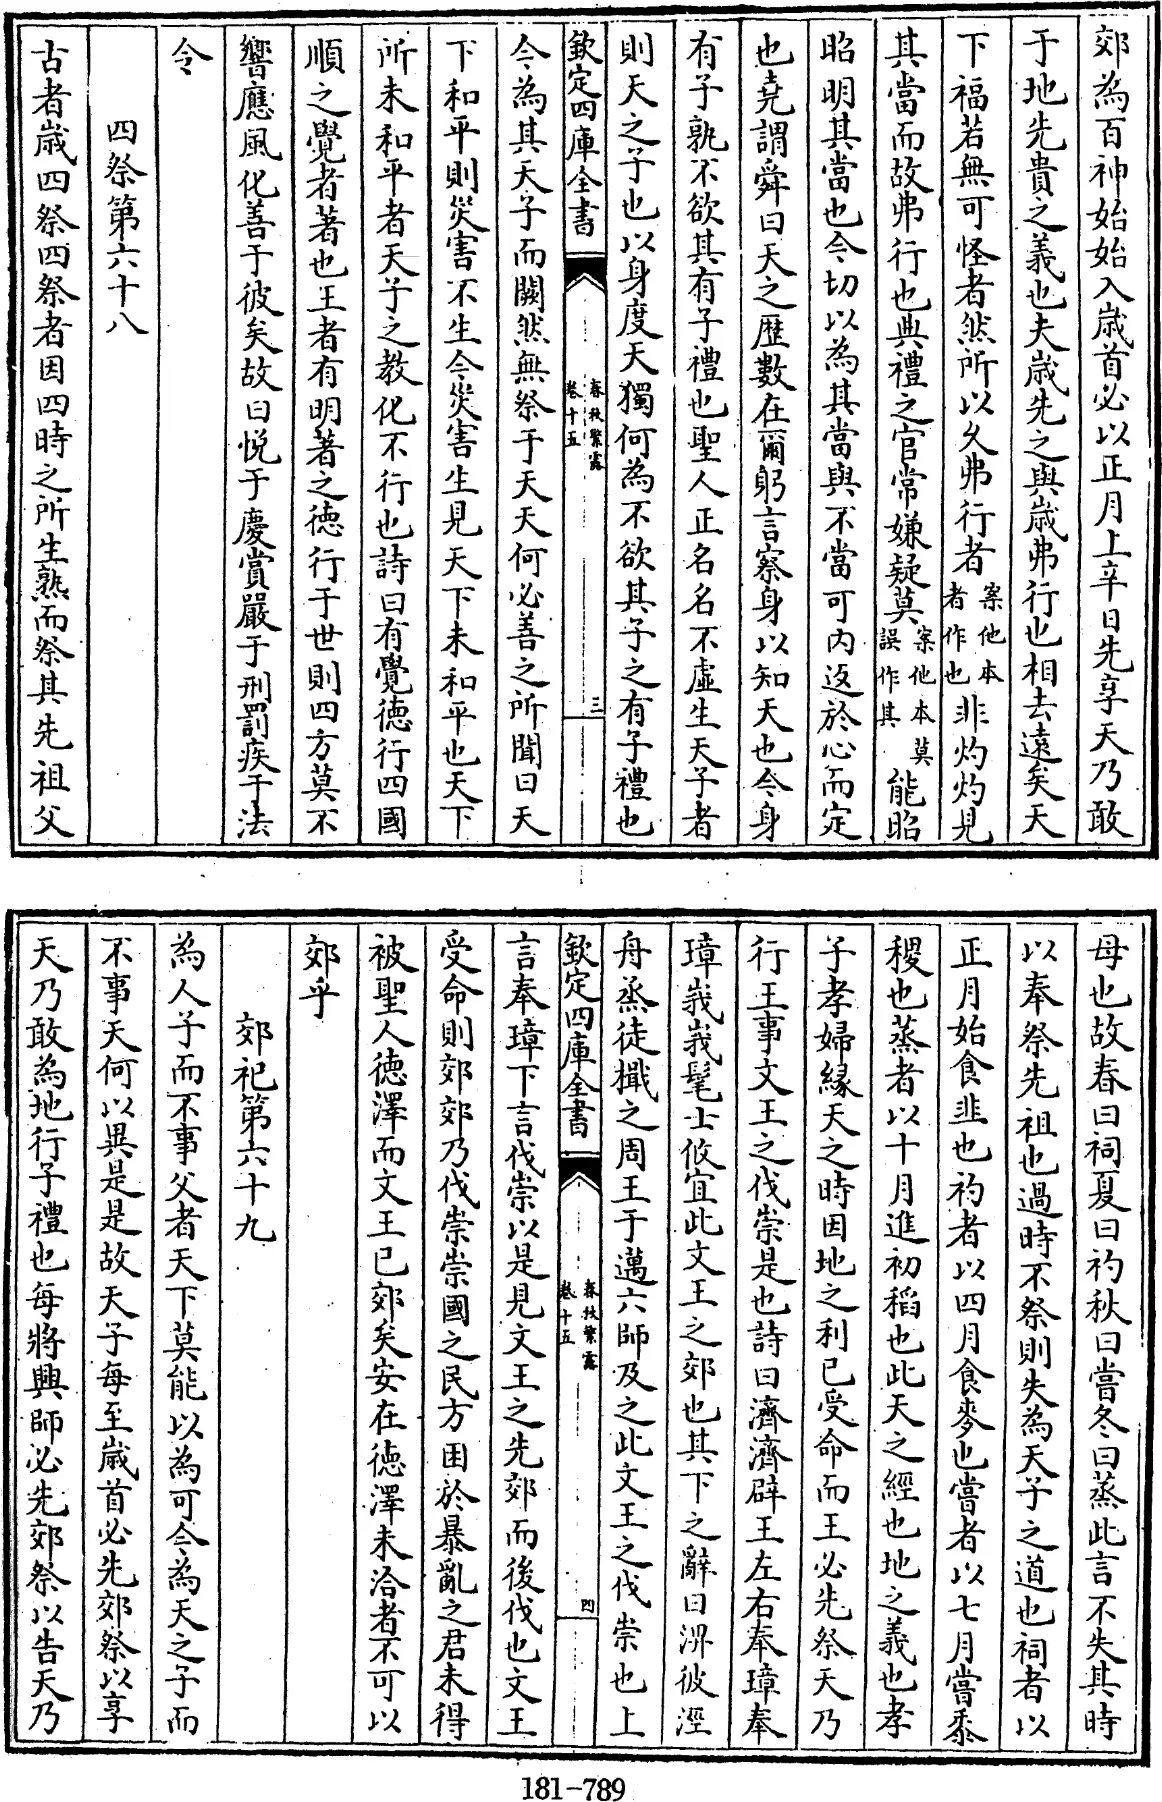 郊為百神始始入歲首必以正月上辛日先享天乃敢
于地先貴之義也夫歲先之與歲弗行也相去遠矣天
下福若無可怪者然所以久弗行者案他本者作也非灼灼見
其當而故弗行也典禮之官常嫌疑莫案他本莫誤作其能昭
昭明其當也今切以為其當與不當可內返於心而定
也堯謂舜曰天之歷數在爾躬言察身以知天也今身
有子孰不欲其有子禮也聖人正名名不虛生天子者
則天之子也以身度天獨何為不欲其子之有子禮也
欽定四庫全書
春秋繁露
卷十五
三
今為其天子而闕然無祭于天天何必善之所聞曰天
下和平則災害不生今災害生見天下未和平也天下
所未和平者天子之教化不行也詩曰有覺德行四國
順之覺者著也王者有明著之德行于世則四方莫不
響應風化善于彼矣故曰悅于慶賞嚴于刑罰疾于法
令
四祭第六十八
古者歲四祭四祭者因四時之所生熟而祭其先祖父
母也故春曰祠夏曰礿秋曰嘗冬曰蒸此言不失其時
以奉祭先祖也過時不祭則失為天子之道也祠者以
正月始食韭也礿者以四月食麥也嘗者以七月嘗黍
稷也蒸者以十月進初稻也此天之經也地之義也孝
子孝婦緣天之時因地之利已受命而王必先祭天乃
行王事文王之伐崇是也詩曰濟濟辟王左右奉璋奉
璋峩峩髦士攸宜此文王之郊也其下之辭曰淠彼涇
舟烝徒檝之周王于邁六師及之此文王之伐崇也上
欽定四庫全書
春秋繁露
卷十五
四
言奉璋下言伐崇以是見文王之先郊而後伐也文王
受命則郊郊乃伐崇崇國之民方困於暴亂之君未得
被聖人德澤而文王已郊矣安在德澤未洽者不可以
郊乎
郊祀第六十九
為人子而不事父者天下莫能以為可今為天之子而
不事天何以異是是故天子每至歲首必先郊祭以享
天乃敢為地行子禮也每將興師必先郊祭以告天乃
181-789